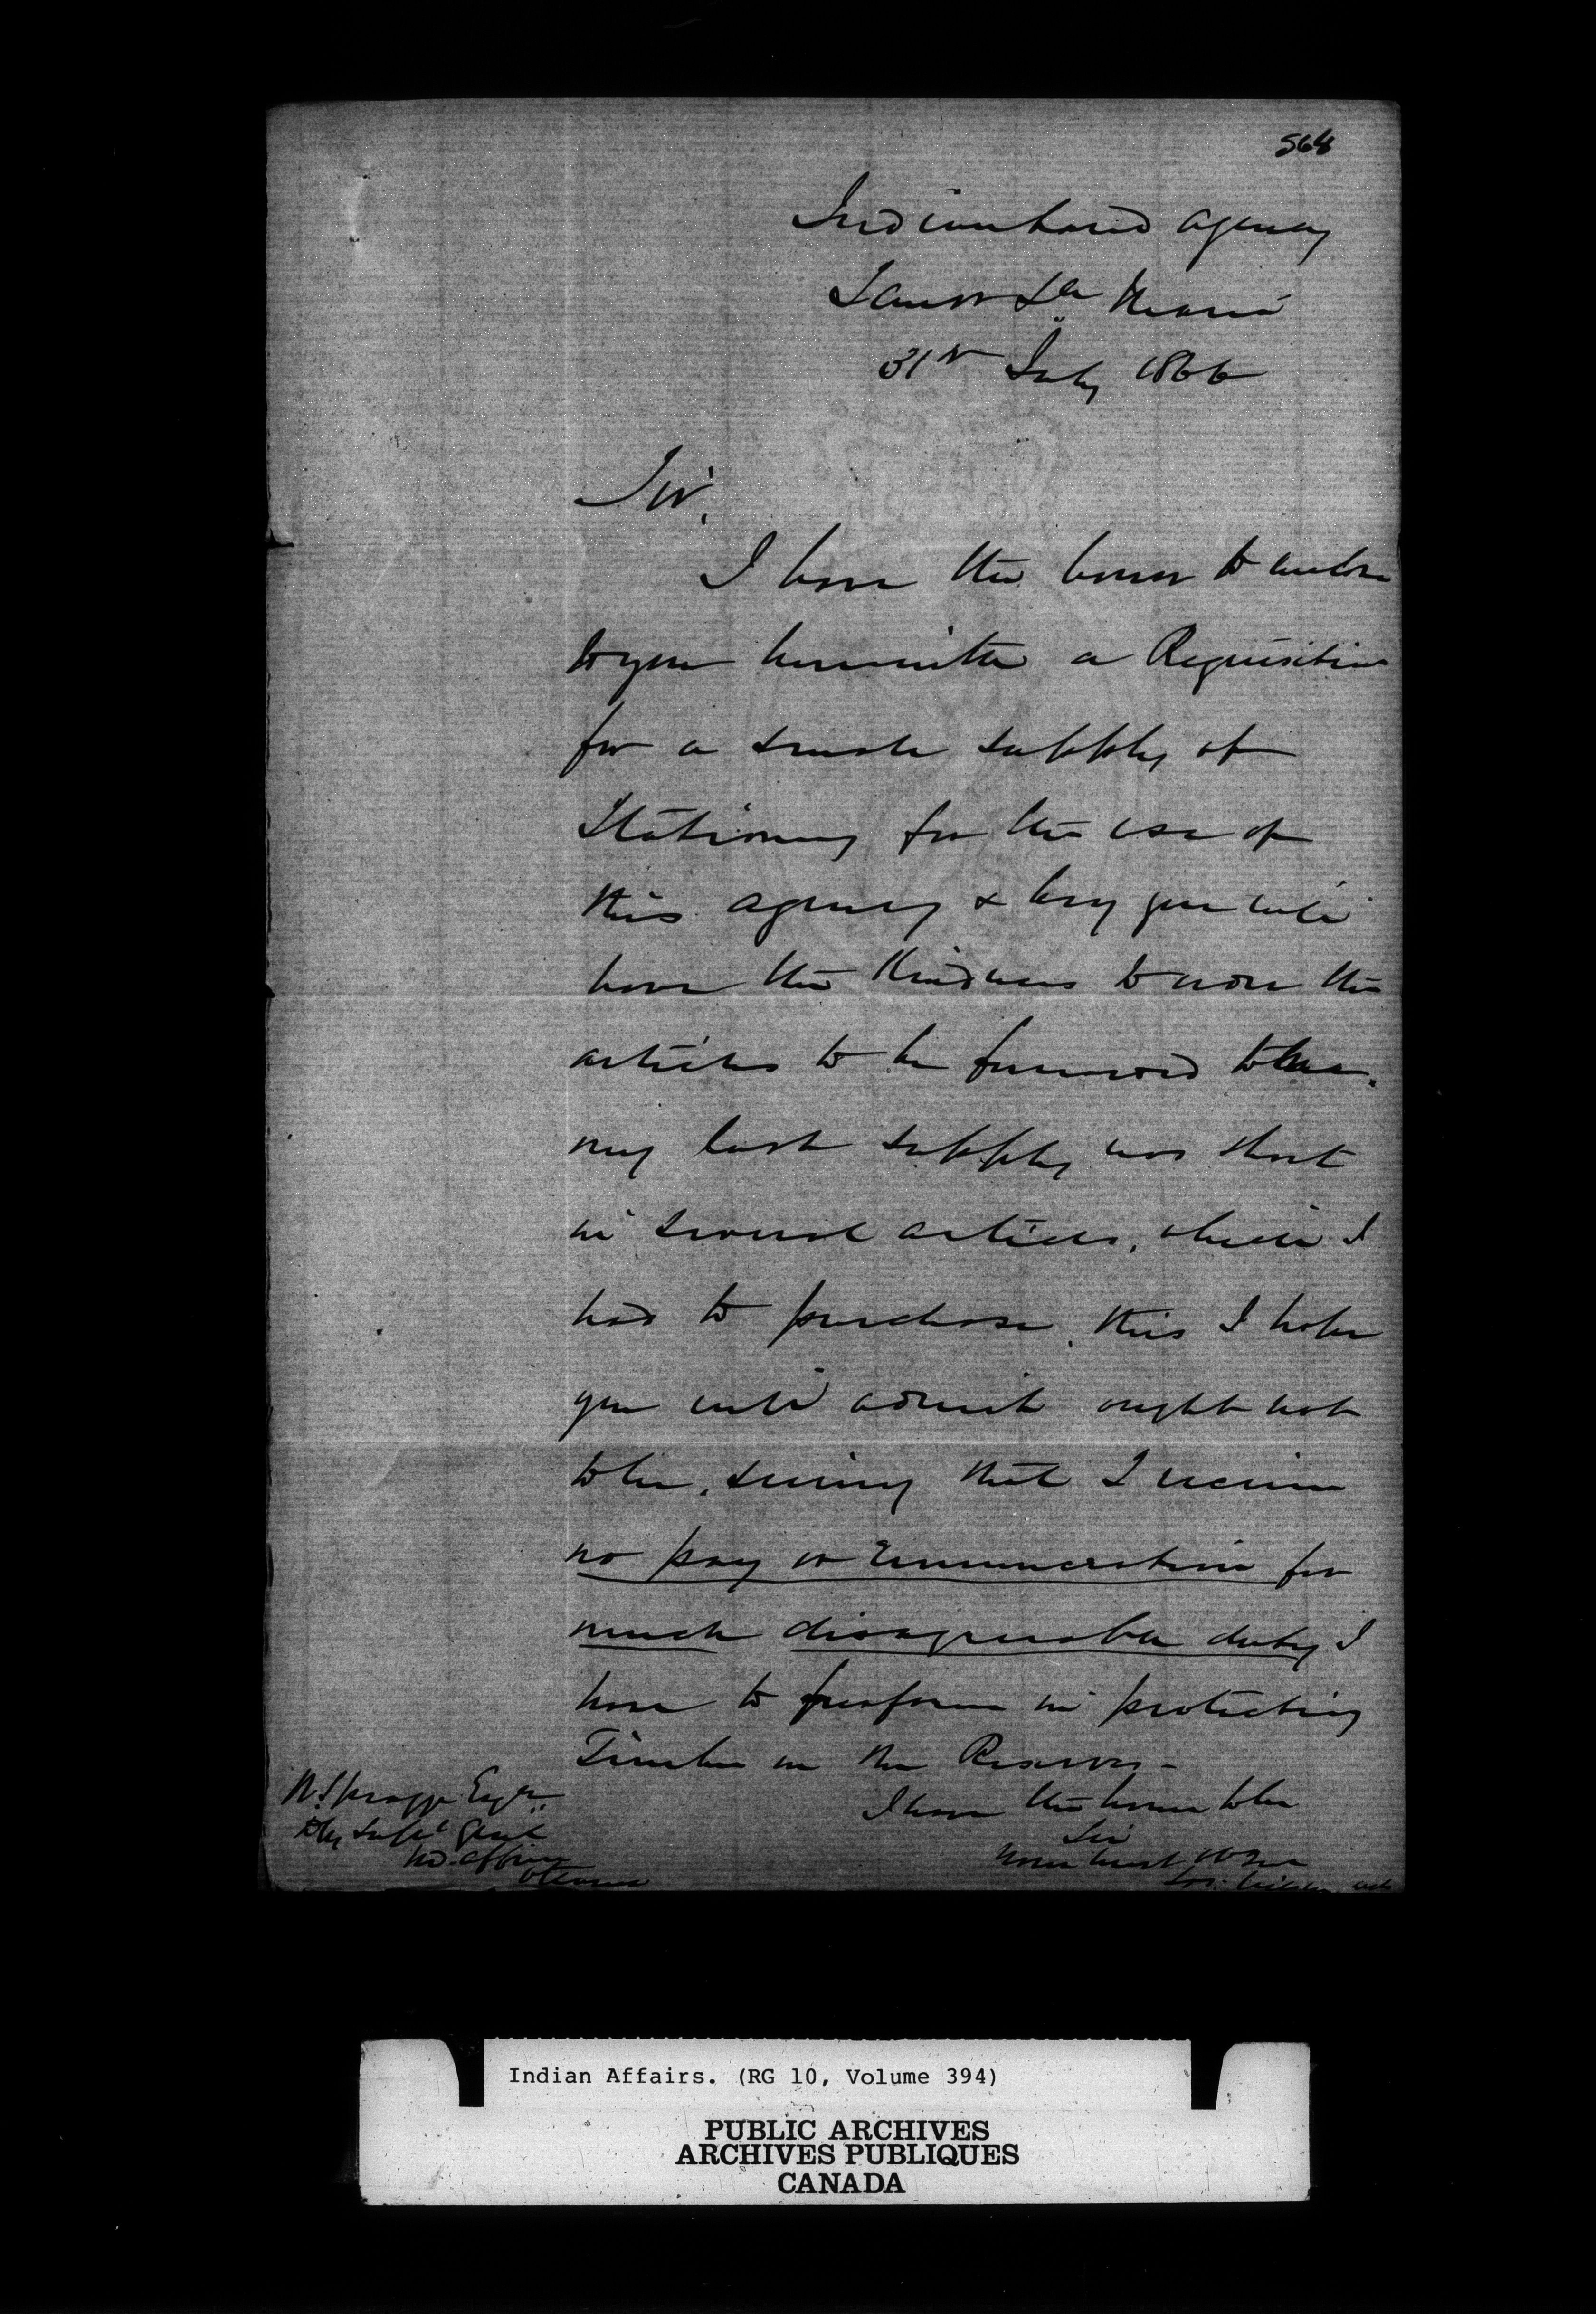 564
Indian Land Agency
Sault Ste Marie
31st July 1866
Sir,
I have the honor to enclose
to you herewith a Requisition
for a small supply of
Stationery for the use of
this agency & beg you will
have the kindness to order the
articles to be forwarded to me.
my last supply was short
in several articles, which I
had to purchase, this I hope
you will admit ought not
to be, seeing that I receive
no pay or remuneration for
much disagreeable duty I
have to perform in protecting
Timber in the Reserves -
I have the honor to be
Sir
Your most Obt Sert
Jos. Wilson
W. Spragge Esqre
Dy Supt Genl
Ind. Affairs
Ottawa
Indian Affairs. (RG 10, Volume 394)
PUBLIC ARCHIVES
ARCHIVES PUBLIQUES
CANADA